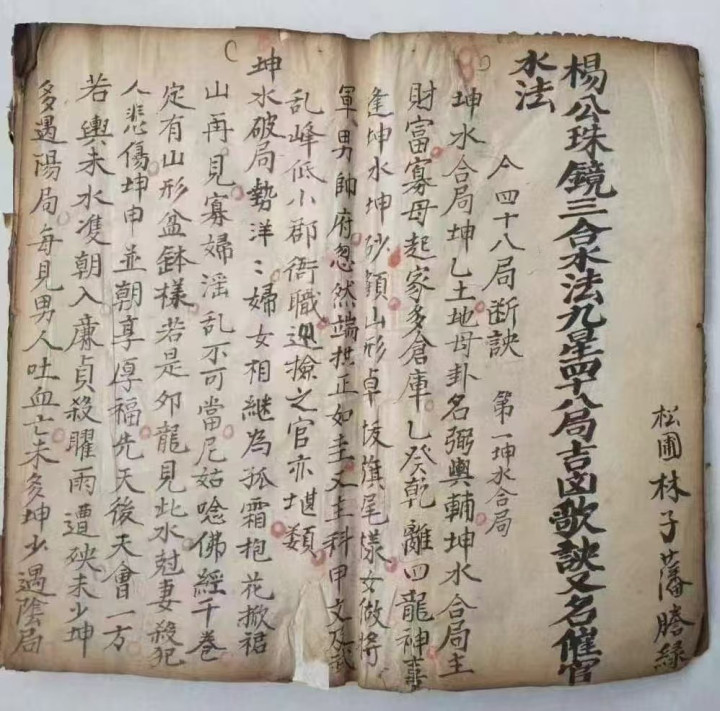 松圃林子藩謄錄
楊公珠鏡三合水法九星四十八局吉凶歌訣又名催官
水法
今四十八局断訣 第一坤水合局
坤水合局坤乙土地母卦名弼輿輔坤水合局主
財富寡母起家多倉庫乙癸乾離四龍神喜
逢坤水坤砂顧山形卓筏旗尾樣女做將
軍男帥府忽然端拱正如圭又主科甲文及武
乱峰低小郡衙職廵撿之官亦堪類
坤水破局勢洋〻婦女相継為孤霜抱花掀裙
山再見寡婦滛乱不可當尼姑唸佛經千巻
定有山形盆鉢樣若是夘龍見此水尅妻殺犯
人悲傷坤申並朝享厚福先天後天會一方
若輿未水䨇朝入廉貞殺曜雨遭殃未少坤
多遇陽局每見男人吐血亡未多坤少遇陰局